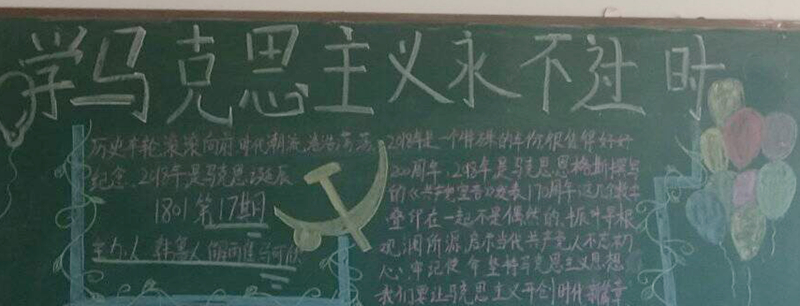 学马克思主义永不过时
历史车轮滚滚向前 时代潮流浩浩荡荡
纪念. 2018年是马克思诞辰
1801第17期
主办人
2018年是一个特殊的年份很值得好好
200周年. 2018年是马克思恩格斯撰写
的《共产党宣言》发表170周年. 这几个数字
叠印在一起不是偶然的. 振叶寻根
观澜所源. 启示当代共产党人不忘初
心. 牢记使命坚持马克思主义思想
我们要让马克思主义开创时代新篇章